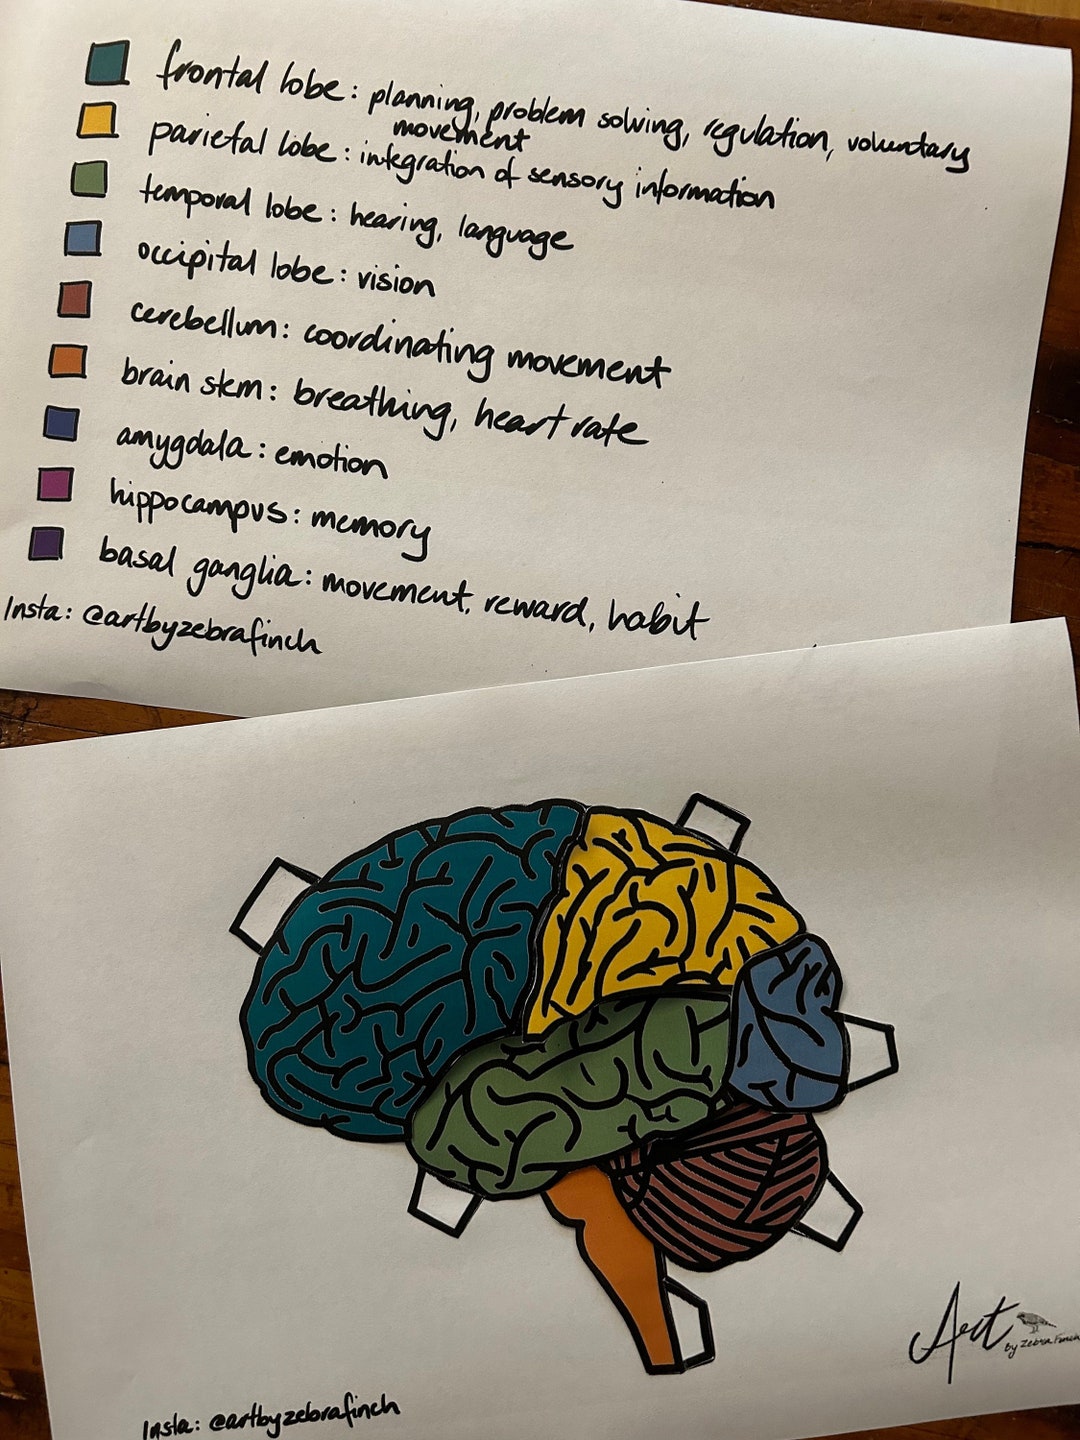 frontal lobe: planning, problem solving, regulation, voluntary
movement
parietal lobe: integration of sensory information
temporal lobe: hearing, language
occipital lobe: vision
cerebellum: coordinating movement
brain stem: breathing, heart rate
amygdala: emotion
hippocampus: memory
basal ganglia: movement, reward, habit
Insta: @artbyzebrafinch
Art
by Zebra Finch
Insta: @artbyzebrafinch